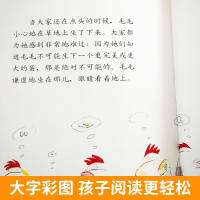 当大家还在点头的时候，毛毛
小心地在草地上坐了下来。大家都
为她感到非常地难过：因为她们知
道毛毛不可能生下一个更完美或更
大的蛋，那是绝对不可能的。毛毛
谦虚地坐在那儿，眼睛看着地上。
大字彩图 孩子阅读更轻松